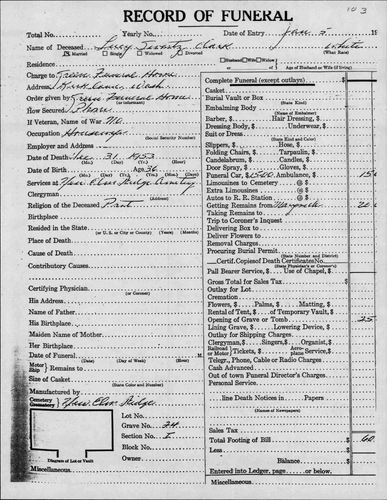 103
RECORD OF FUNERAL
Total No. Yearly No. Date of Entry Jan. 5 19
Name of Deceased Lucy Swartz Clark White
Married Single Widowed Divorced Husband Wife Widow (What Race)
Residence of Age of Husband or Wife (if living)
Charge to Green Funeral Home
Address Kirkland, Wash
Order given by Green Funeral Home
(or informant)
How Secured Phone
If Veteran, Name of War No.
Occupation Housewife
(Social Security Number)
Employer and Address
Date of Death Dec. 31, 1953
(Mo.) (Day) (Yr.) (Hour)
Date of Birth Age 36
(Mo.) (Day) (Yr.)
Services at New Elm Ridge Cemetery
Clergyman
Religion of the Deceased Prot.
Birthplace
Resided in the State
(or U. S. or City or County) (Yrs. Months Days)
Place of Death
Cause of Death
Contributory Causes
Certifying Physician
(or Coroner)
His Address
Name of Father
His Birthplace
Maiden Name of Mother
Her Birthplace
Date of Funeral M.
(Date) (Day) (Hour)
Motor Ship Remains to
Size of Casket
(State Color and Number)
Manufactured by
Cemetery Crematory New Elm Ridge
Lot No.
Grave No. 24
Section No. I
Block No.
Owner
Diagram of Lot or Vault
Miscellaneous
Complete Funeral (except outlays) $
Casket
Burial Vault or Box
(State Kind)
Embalming Body
(Name of Embalmer)
Barber, $ Hair Dressing, $
Dressing Body, $ Underwear, $
Suit or Dress
(State Kind and Color)
Slippers, $ Hose, $
Folding Chairs, $ Tarpaulin, $
Candelabrum, $ Candles, $
Door Spray, $ Gloves, $
Funeral Car, $ 15.00 Ambulance, $ 15
Limousines to Cemetery @ $
Extra Limousines @ $
Autos to R. R. Station @ $
Getting Remains from Maryville 20
Taking Remains to
Trip to Coroner's Inquest
Delivering Box to
Deliver Flowers to
Removal Charges
Procuring Burial Permit
(State Number and District)
Certif. Copies of Death Certificates No.
(State Physician's or Coroner's)
Pall Bearer Service, $ Use of Chapel, $
Gross Total for Sales Tax $
Outlay for Lot
Cremation
Flowers, $ Palms, $ Matting, $
Rental of Tent, $ of Temporary Vault, $
Opening of Grave or Tomb 25
Lining Grave, $ Lowering Device, $
Outlay for Shipping Charges
Clergyman, $ Singers, $ Organist, $
Railroad Motor Tickets, $ Aeroplane Service, $
Telegr., Phone, Cable or Radio Charges
Cash Advanced
Out of town Funeral Director's Charges
Personal Service
line Death Notices in Papers
(Names of Newspapers)
Sales Tax
Total Footing of Bill $ 60
Less $
Balance $
Entered into Ledger, page or below.
Miscellaneous